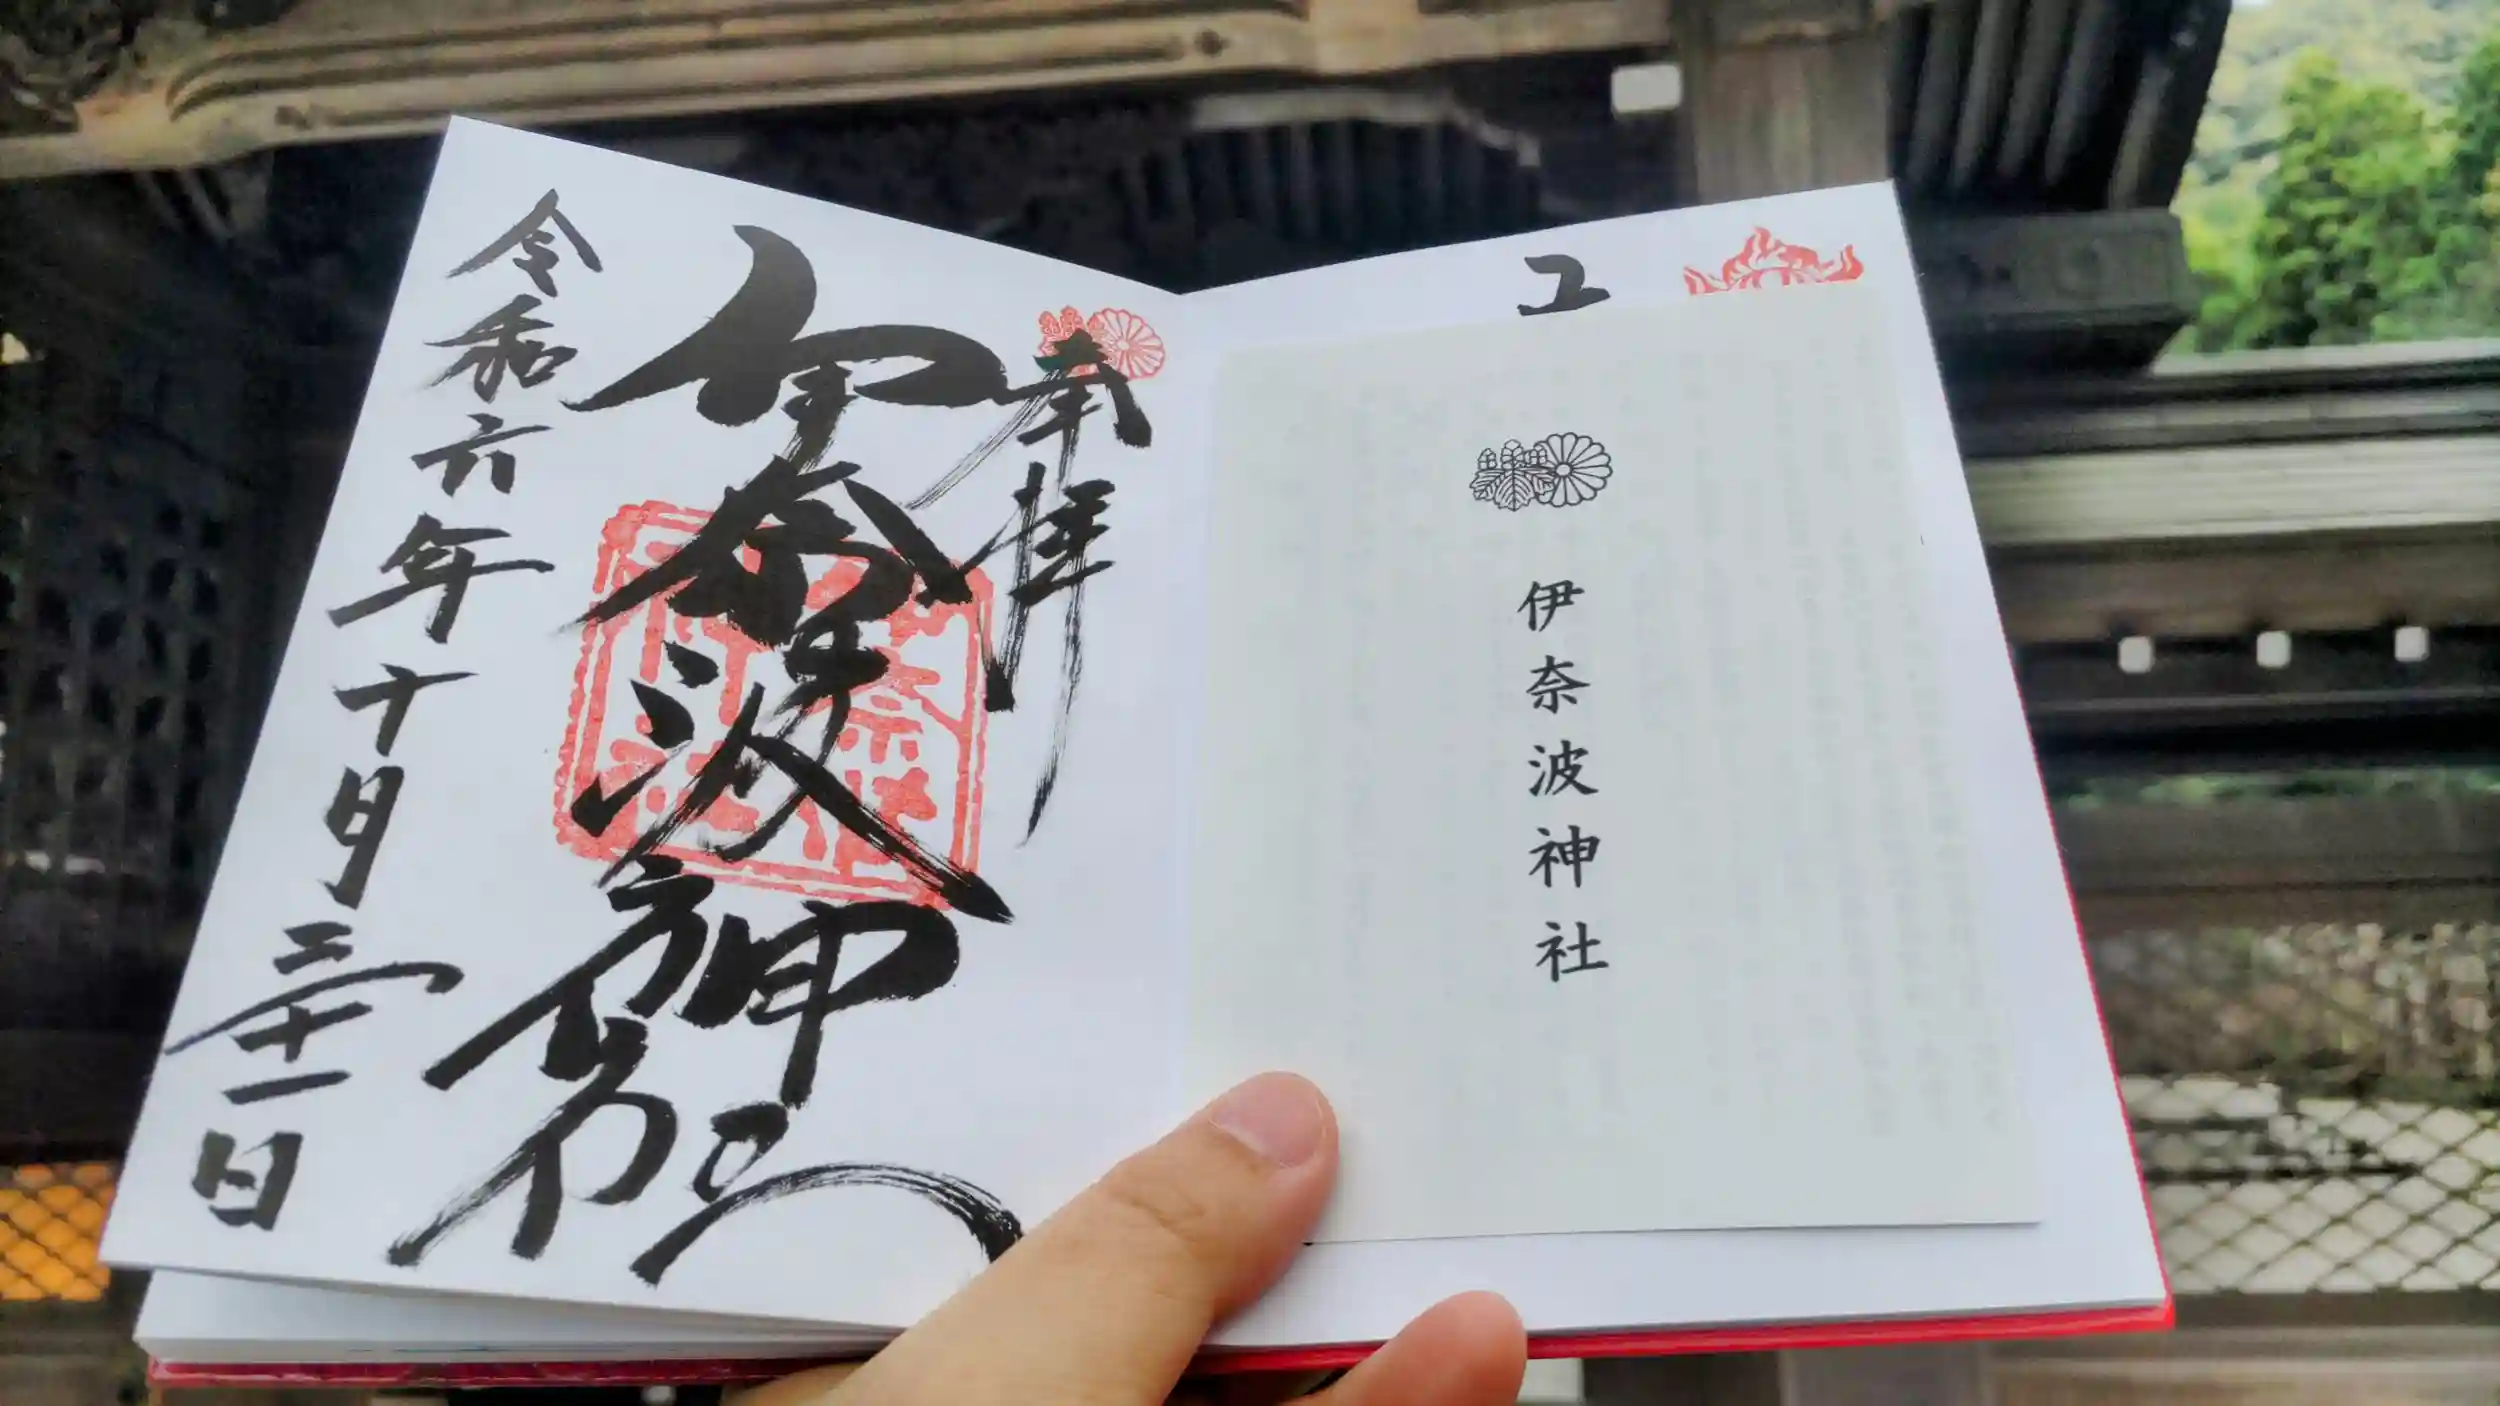 伊奈波神社
奉拝
伊奈波神社
令和六年十月三十一日